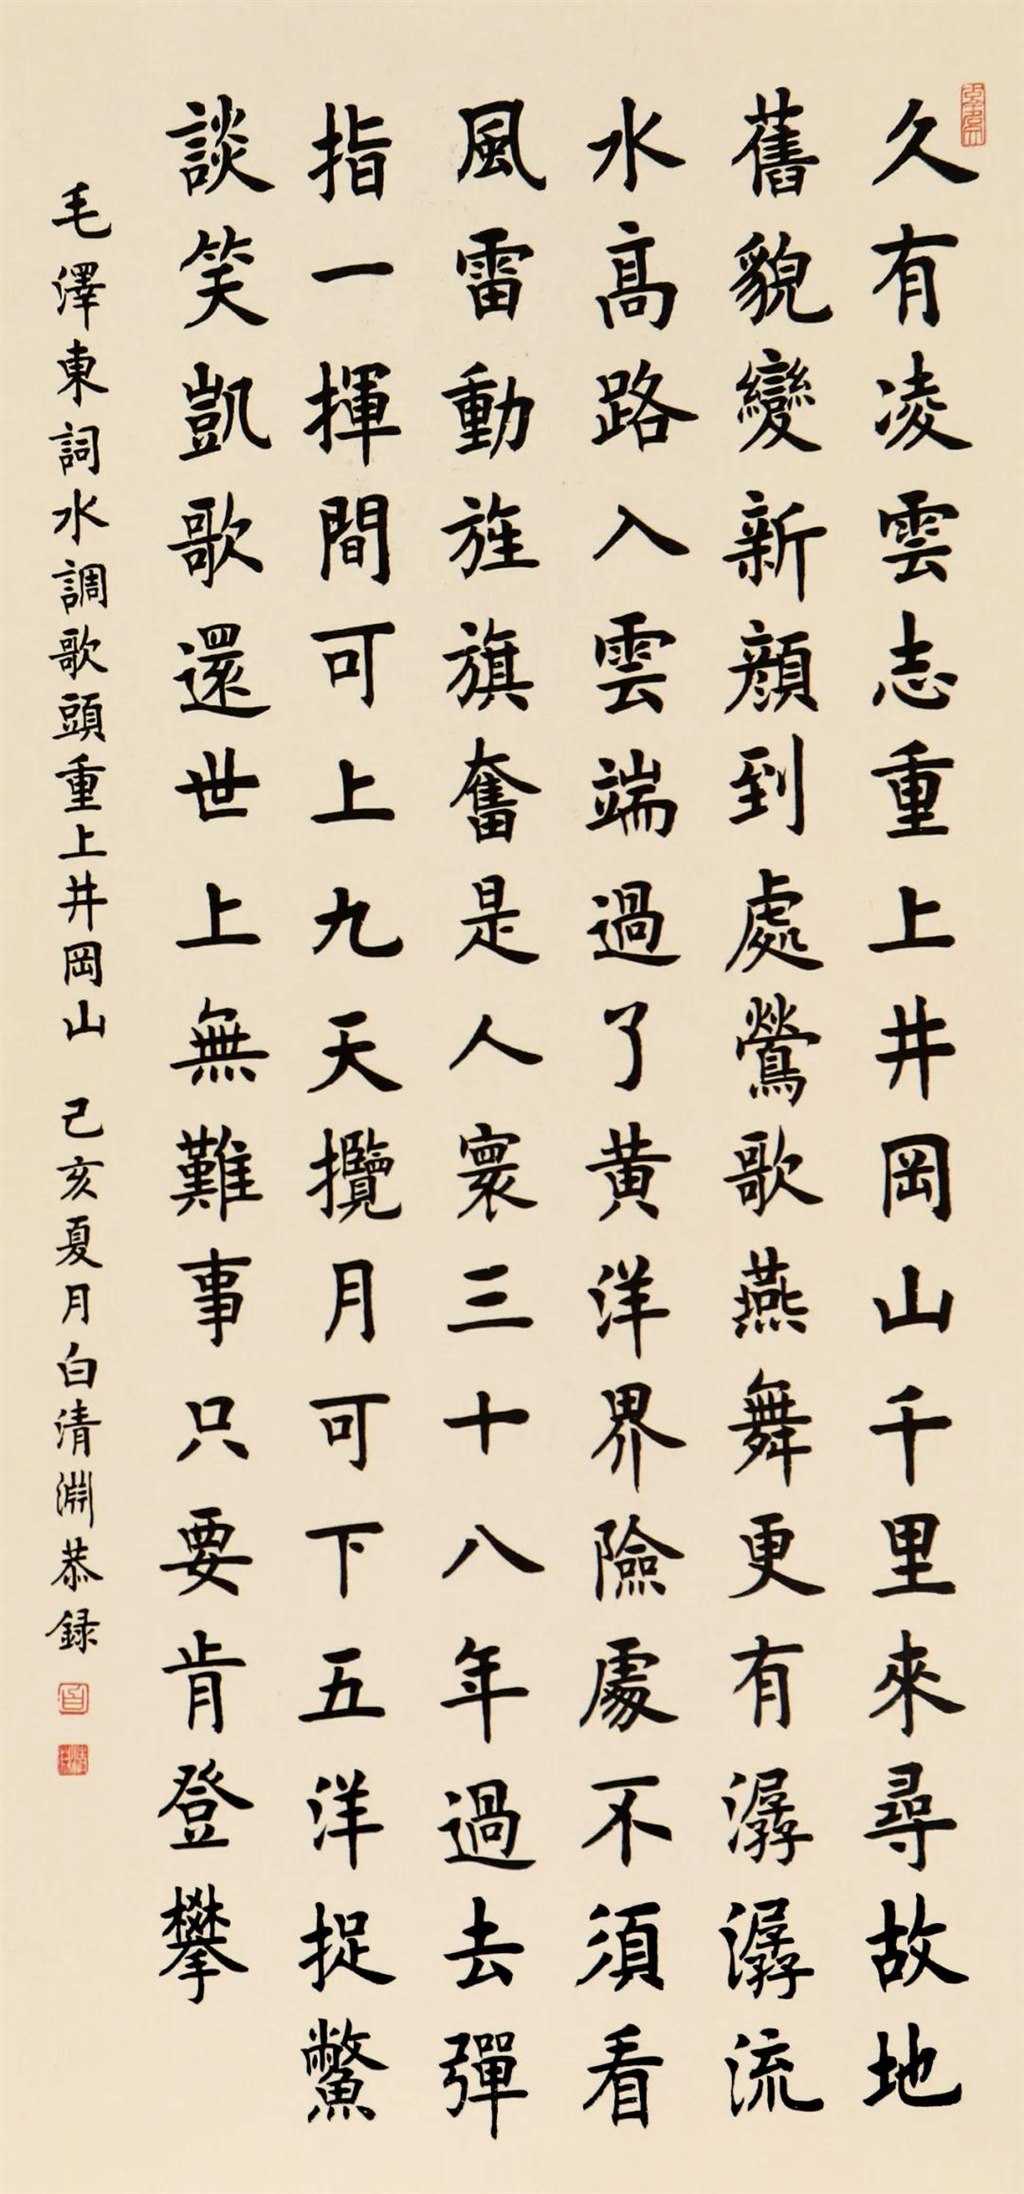 久有凌雲志重上井岡山千里來尋故地
舊貌變新顔到處鶯歌燕舞更有潺潺流
水高路入雲端過了黄洋界險處不須看
風雷動旌旗奮是人寰三十八年過去彈
指一揮間可上九天攬月可下五洋捉鱉
談笑凱歌還世上無難事只要肯登攀
毛澤東詞水調歌頭重上井岡山 己亥夏月白清淵恭録